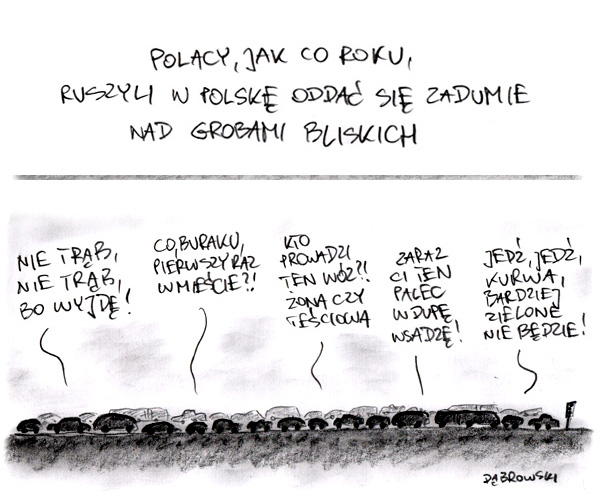 POLACY, JAK CO ROKU,
RUSZYLI W POLSKĘ ODDAĆ SIĘ ZADUMIE
NAD GROBAMI BLISKICH
NIE TRĄB,
NIE TRĄB,
BO WYJDĘ!
CO, BURAKU,
PIERWSZY RAZ
W MIEŚCIE?!
KTO
PROWADZI
TEN WÓZ?!
ŻONA CZY
TEŚCIOWA
ZARAZ
CI TEN
PALEC
W DUPĘ
WSADZĘ!
JEDŹ, JEDŹ,
KURWA,
BARDZIEJ
ZIELONE
NIE BĘDZIE!
DĄBROWSKI